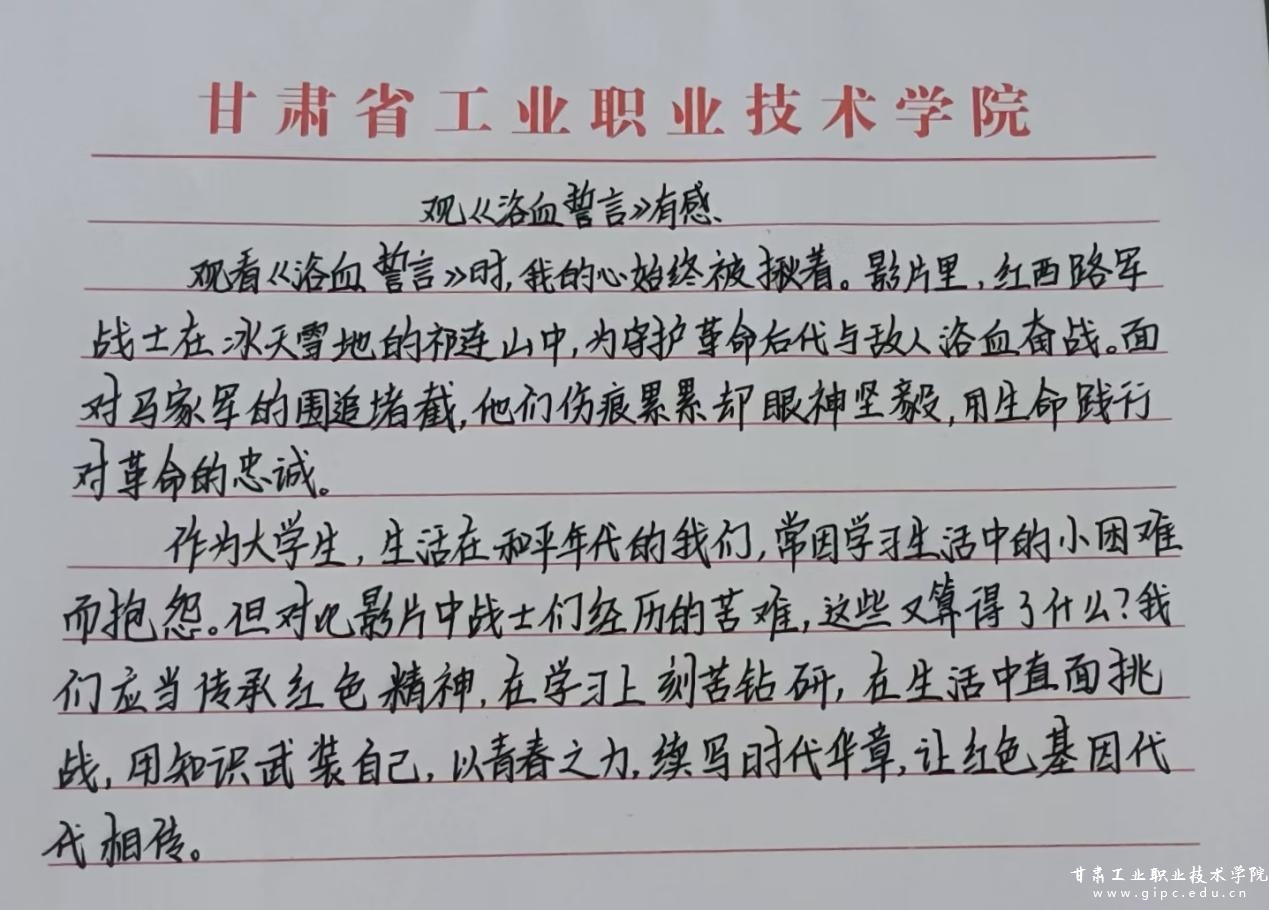 甘肃省工业职业技术学院
观《浴血誓言》有感
观看《浴血誓言》时,我的心始终被揪着。影片里,红西路军
战士在冰天雪地的祁连山中,为守护革命后代与敌人浴血奋战。面
对马家军的围追堵截,他们伤痕累累却眼神坚毅,用生命践行
对革命的忠诚。
作为大学生,生活在和平年代的我们,常因学习生活中的小困难
而抱怨。但对比影片中战士们经历的苦难,这些又算得了什么?我
们应当传承红色精神,在学习上刻苦钻研,在生活中直面挑
战,用知识武装自己,以青春之力,续写时代华章,让红色基因代
代相传。
甘肃工业职业技术学院
www.gipc.edu.cn